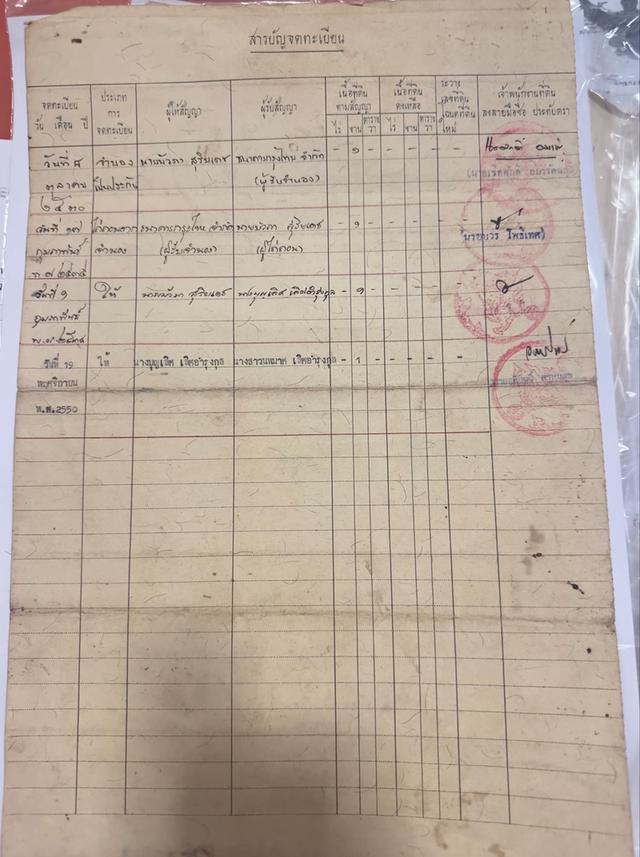 สารบัญจดทะเบียน
จดทะเบียน วัน เดือน ปี
ประเภทการจดทะเบียน
ผู้ให้สัญญา
ผู้รับสัญญา
เนื้อที่ดินตามสัญญา
ไร่ งาน ตารางวา
เนื้อที่ดินคงเหลือ
ไร่ งาน ตารางวา
ระวาง เลขที่ดิน โฉนดที่ดินใหม่
เจ้าพนักงานที่ดิน ลงลายมือชื่อ ประทับตรา
วันที่ ๘ จำนอง นายบัวภา สุริยเดช ธนาคารกรุงไทย จำกัด - ๑ - - - - -
ตุลาคม เป็นประกัน (ผู้รับจำนอง)
๒๕๓๐
วันที่ ๑๗ ไถ่ถอนจาก ธนาคารกรุงไทย จำกัด นายบัวภา สุริยเดช - ๑ - - - - -
กุมภาพันธ์ จำนอง (ผู้รับจำนอง) (ผู้ไถ่ถอน)
พ.ศ.
วันที่ ๑ ให้ นายบัวภา สุริยเดช - ๑ - - - - -
กุมภาพันธ์
พ.ศ.
วันที่ 19 ให้ นางบุญเชิด เชิดอำรุงกุล นางสาวนฤมาศ เชิดอำรุงกุล - 1 - - - - -
พฤศจิกายน
พ.ศ.2550